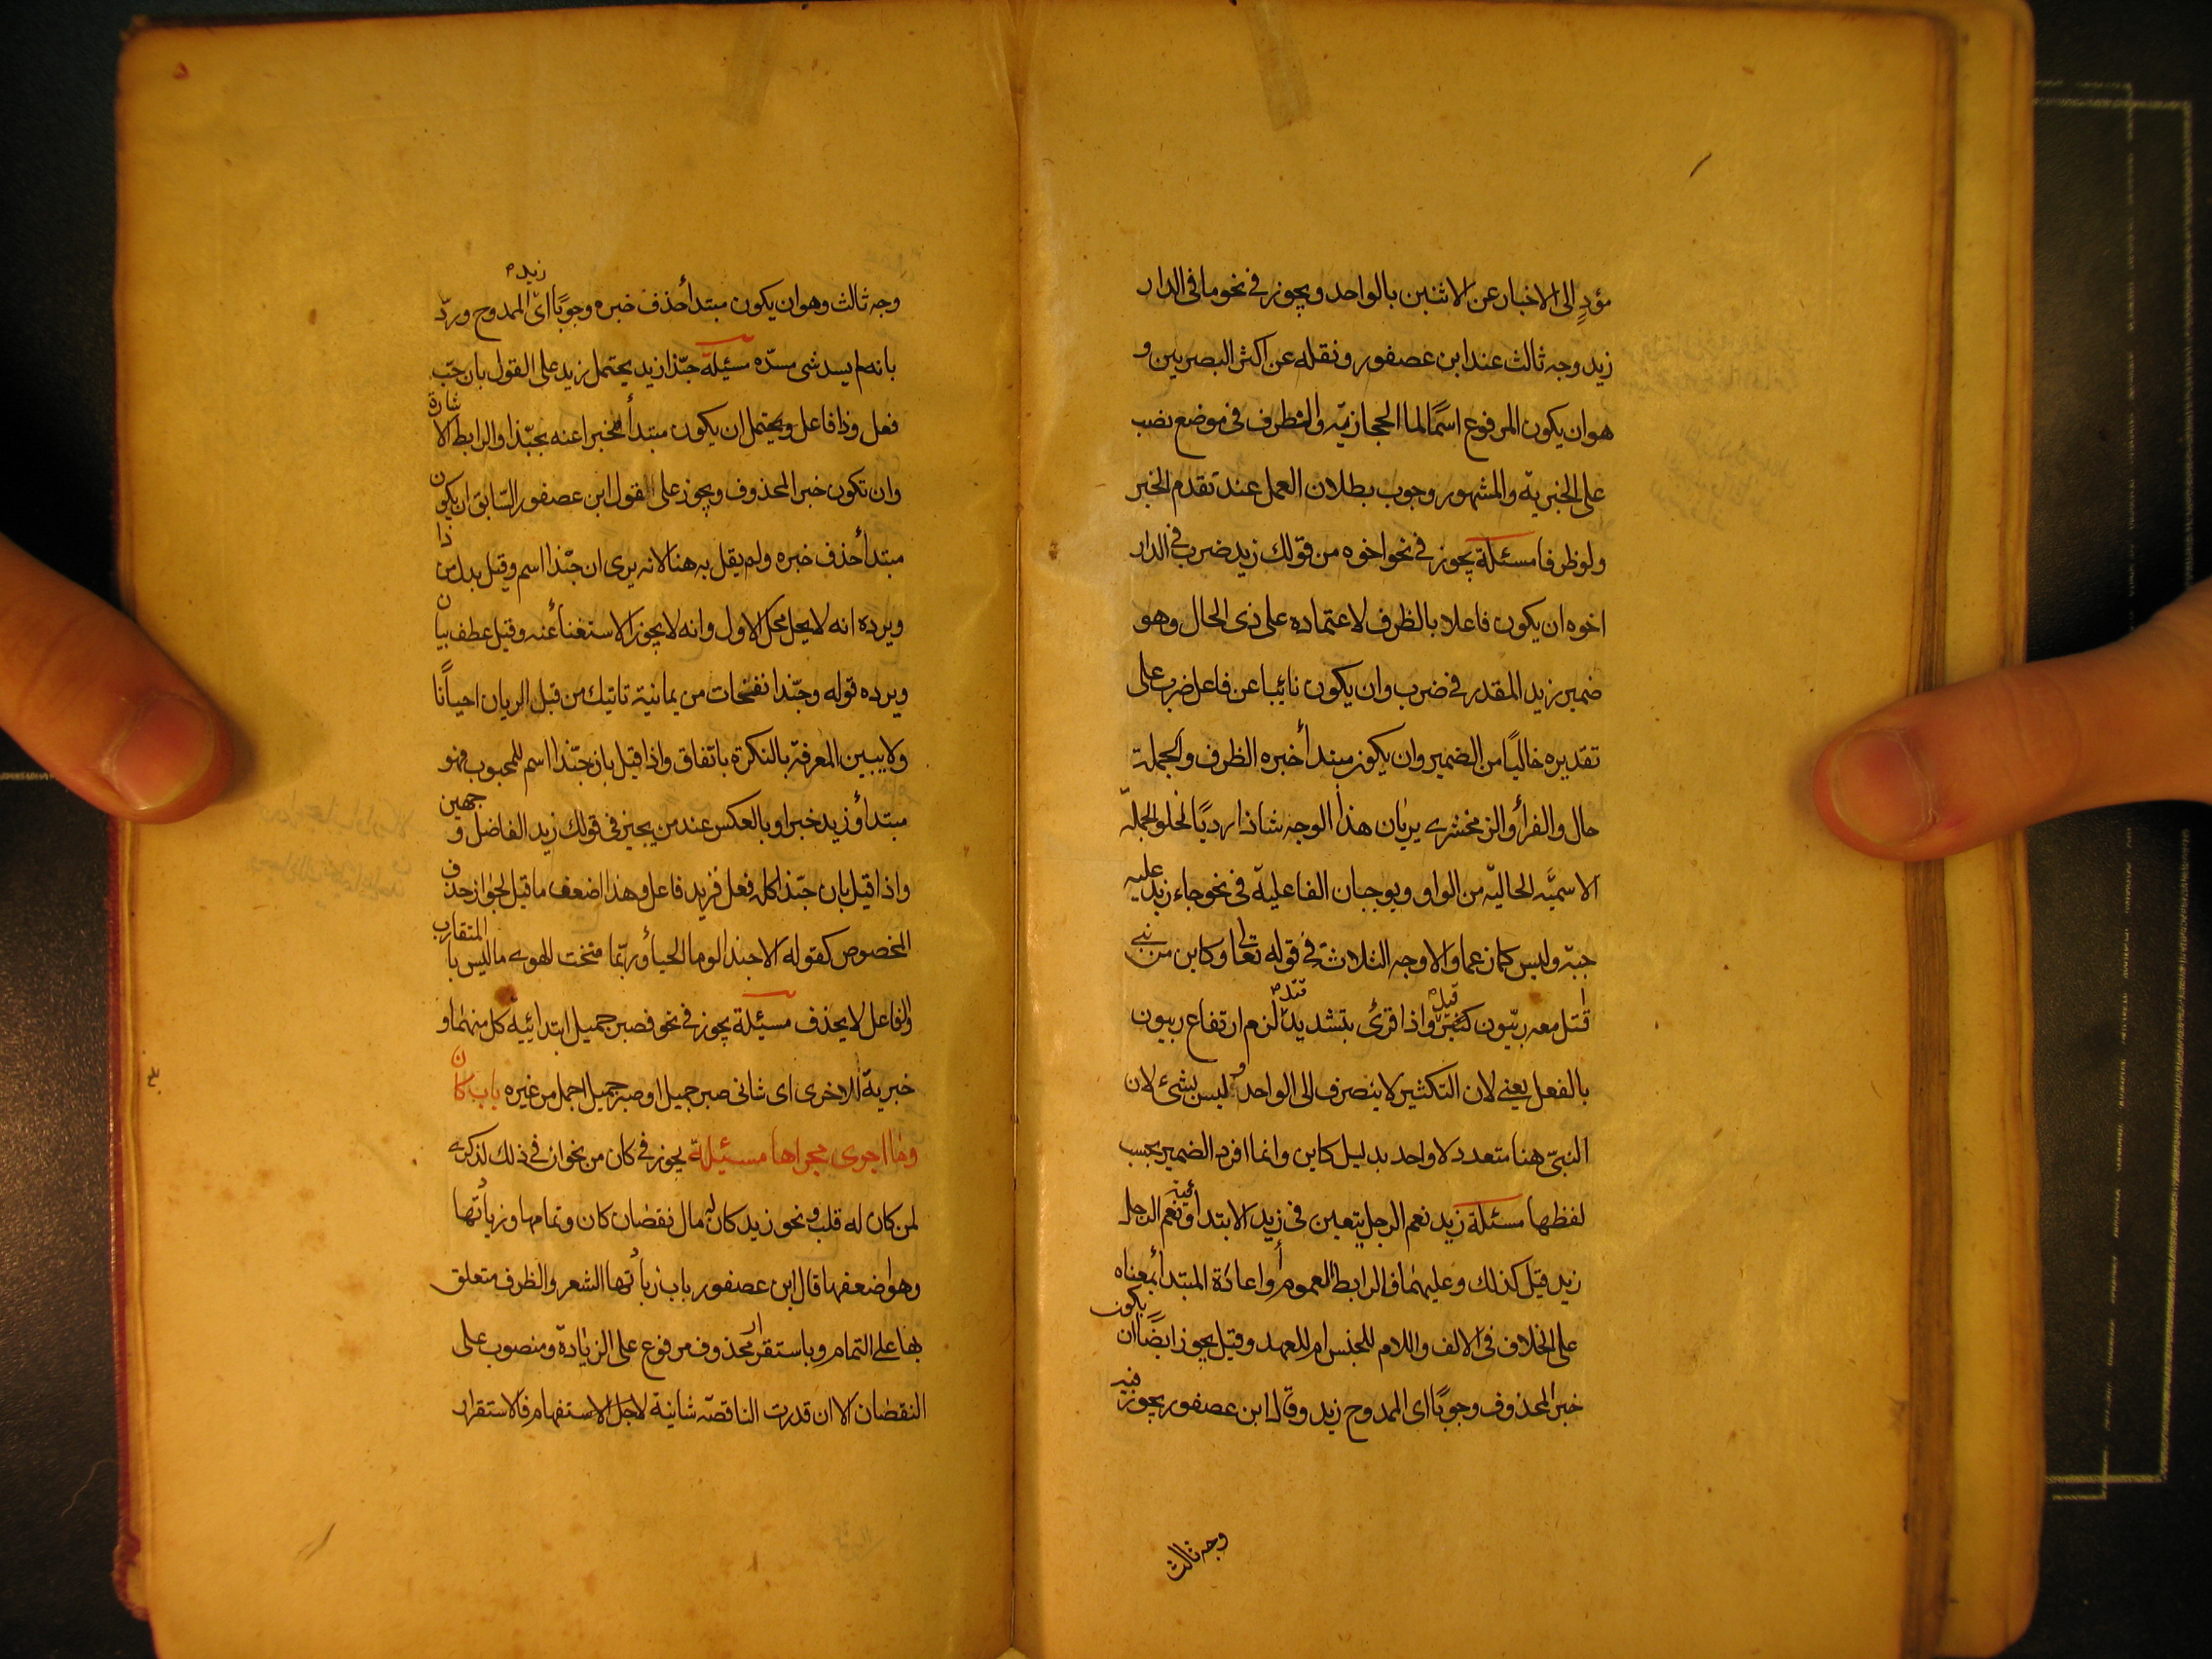 مؤدٍ الى الاخبار عن الاثنين بالواحد ويجوز فى نحو ما فى الدار
زيد وجه ثالث عند ابن عصفور ونقله عن اكثر البصريين و
هو ان يكون المرفوع اسمًا لما الحجازيّه والظرف فى موضع نصب
على الخبرية والمشهور وجوب بطلان العمل عند تقدم الخبر
ولو ظرفا مسئلة يجوز فى نحو اخوه من قولك زيد ضرب فى الدار
اخوه ان يكون فاعلا بالظرف لاعتماده على ذى الحال وهو
ضمير زيد المقدر فى ضرب وان يكون نائبا عن فاعل ضرب على
تقديره خاليًا من الضمير وان يكون مبتدأ خبره الظرف والجملة
حال والفرأ والزمخشرى يريان هذا الوجه شاذا رديًا لخلو الجملة
الاسميّه الحاليّه من الواو ويوجبان الفاعلية فى نحو جاء زيد عليه
جبّه وليس كما زعما والاوجه الثلاثة فى قوله تعالى وكاين من نبى
قتل معه ربّيون كثير قيل واذا قرئ بتشديد قتّل لزم ارتفاع ربيون
بالفعل يعنى لان التكثير لا ينصرف الى الواحد وليس بشئ لان
النبىّ هنا متعدد لا واحد بدليل كاين وانما افرد الضمير بحسب
لفظها مسئلة زيد نعم الرجل يتعين فى زيد الابتدائية ونعم الرجل
زيد قيل كذلك وعليهما فالرابط العموم أو اعادة المبتدأ بمعناه
على الخلاف فى الالف واللام للجنس ام للعهد وقيل يجوز ايضًا ان يكون
خبر المحذوف وجوبًا اى الممدوح زيد وقال ابن عصفور يجوز فيه
وجه ثالث
٥
وجه ثالث وهو ان يكون مبتدأ حذف خبره وجوبًا اى زيد الممدوح وردّ
بانه لم يسد شى مسدّه مسئلة حبّذا زيد يحتمل زيد على القول بان حبّ
فعل وذا فاعل ويحتمل ان يكون مبتدأ مخبرا عنه بحبّذا والرابط الاشارة
وان تكون خبر المحذوف ويجوز على القول ابن عصفور السّابق ان يكون
مبتدأ حذف خبره ولم يقل به هنا لانه يرى ان حبّذا اسم وقيل بدل من ذا
ويرده انه لا يحل محل الاول وانه لا يجوز الاستغنأ عنه وقيل عطف بيان
ويرده قوله وحبّذا نفحات من يمانية تاتيك من قبل الريان احيانًا
ولا يبين المعرفة بالنكرة باتفاق واذا قيل بان حبّذا اسم للمحبوب فهو
مبتدأ وزيد خبر او بالعكس عند من يجيز فى قولك زيد الفاضل وجهين
واذا قيل بان حبّذا كله فعل فزيد فاعل وهذا اضعف ما قيل لجواز حذف
المخصوص كقوله الا حبذا لوما الحيأ وربّما منحت الهوى ما ليس بالمتقارب
والفاعل لا يحذف مسئلة يجوز فى نحو فصبر جميل ابتدائيّة كل منهما و
خبرية الاخرى اى شانى صبر جميل او صبر جميل اجمل من غيره باب كان
وما اجرى مجراها مسئلة يجوز فى كان من نحو ان فى ذلك لذكرى
لمن كان له قلب ونحو زيد كان له مال نقصان كان وتمامها وزيادتها
وهو اضعفها قال ابن عصفور باب زيادتها الشعر والظرف متعلق
بها على التمام وباستقرار محذوف مرفوع على الزيادة ومنصوب على
النقصان الا ان قدرت الناقصّه شانية لاجل الاستفهام فالاستقرار